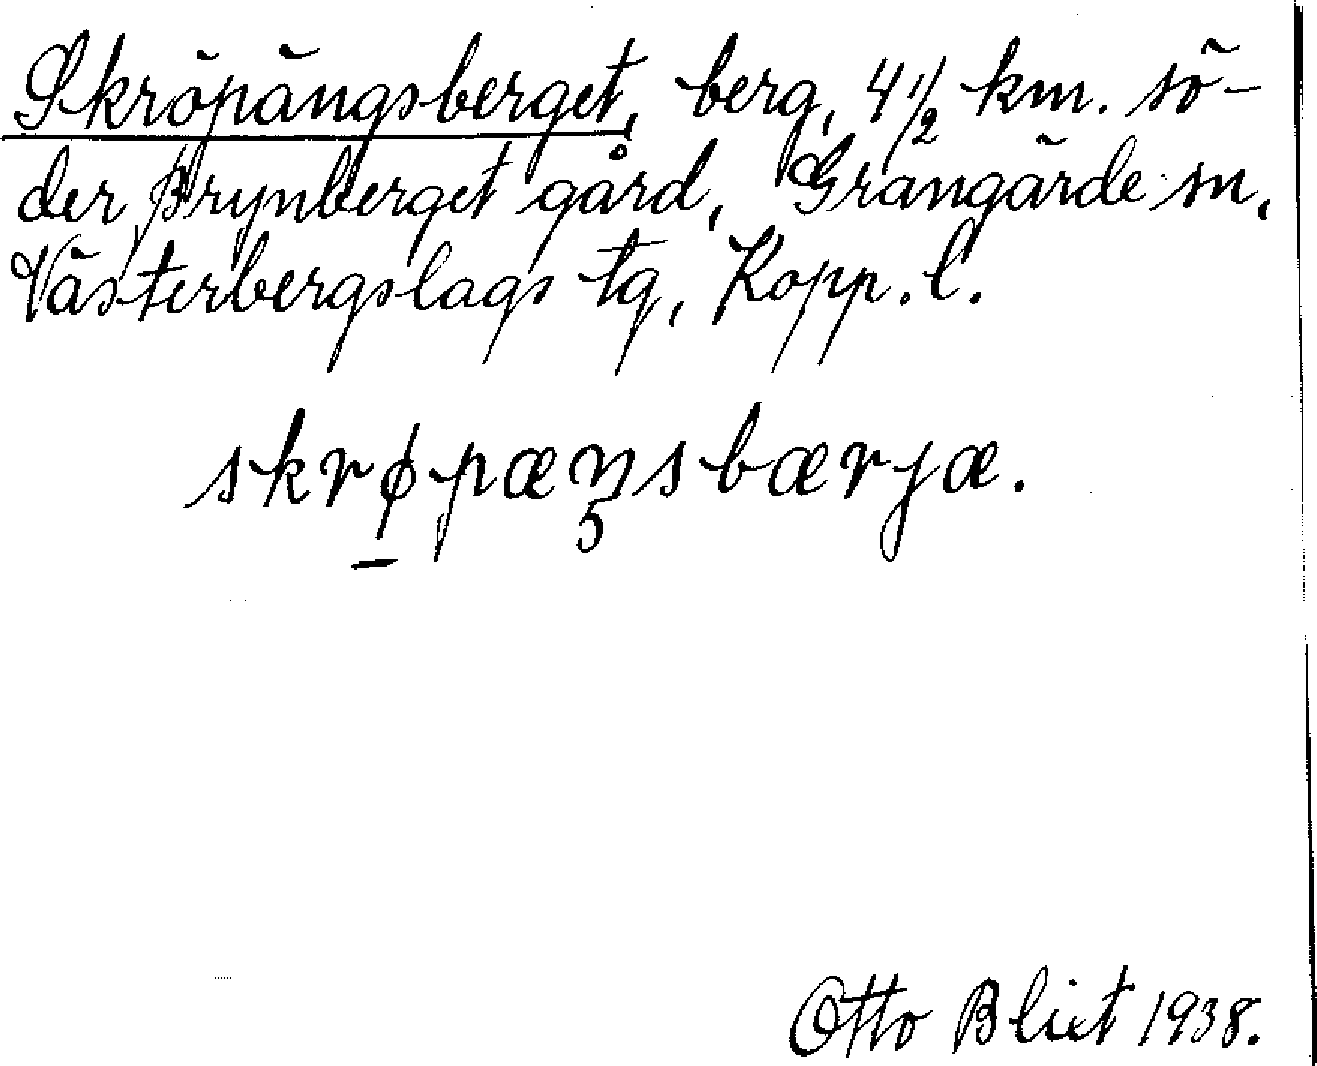 Skröpängsberget, berg, 4 1/2 km. sö-
der Brynberget gård, Grangärde sn,
Västerbergslags tg, Kopp. l.
skrø̱pæŋsbærjæ.
Otto Blixt 1938.